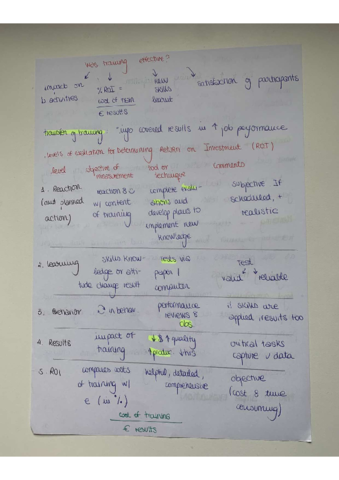 Was training effective?
impact on % ROI = new satisfaction of participants
b activities cost of train skills
€ results learnt
transfer of training: "
covered results in ↑ job performance
levels of evaluation for determining Return on Investment (ROI)
level objective of measurement tool or technique comments
1. Reaction reaction & c complete evalu- subjective if
(and planned w/ content ations and scheduled, +
action) of training develop plans to realistic
implement new
knowledge
2. learning skills know- tests via Test
ledge or atti- paper / valid reliable
tude change result computer
3. Behavior in behavior performance if skills are
reviews & applied, results too
obs
4. Results impact of ↓$ ↑ quality critical tasks
training ↑ produc ↓ this capture data
5. ROI compares costs helpful, detailed, objective
of training w/ comprehensive (cost & time
€ (in %) consuming)
cost of training
€ results